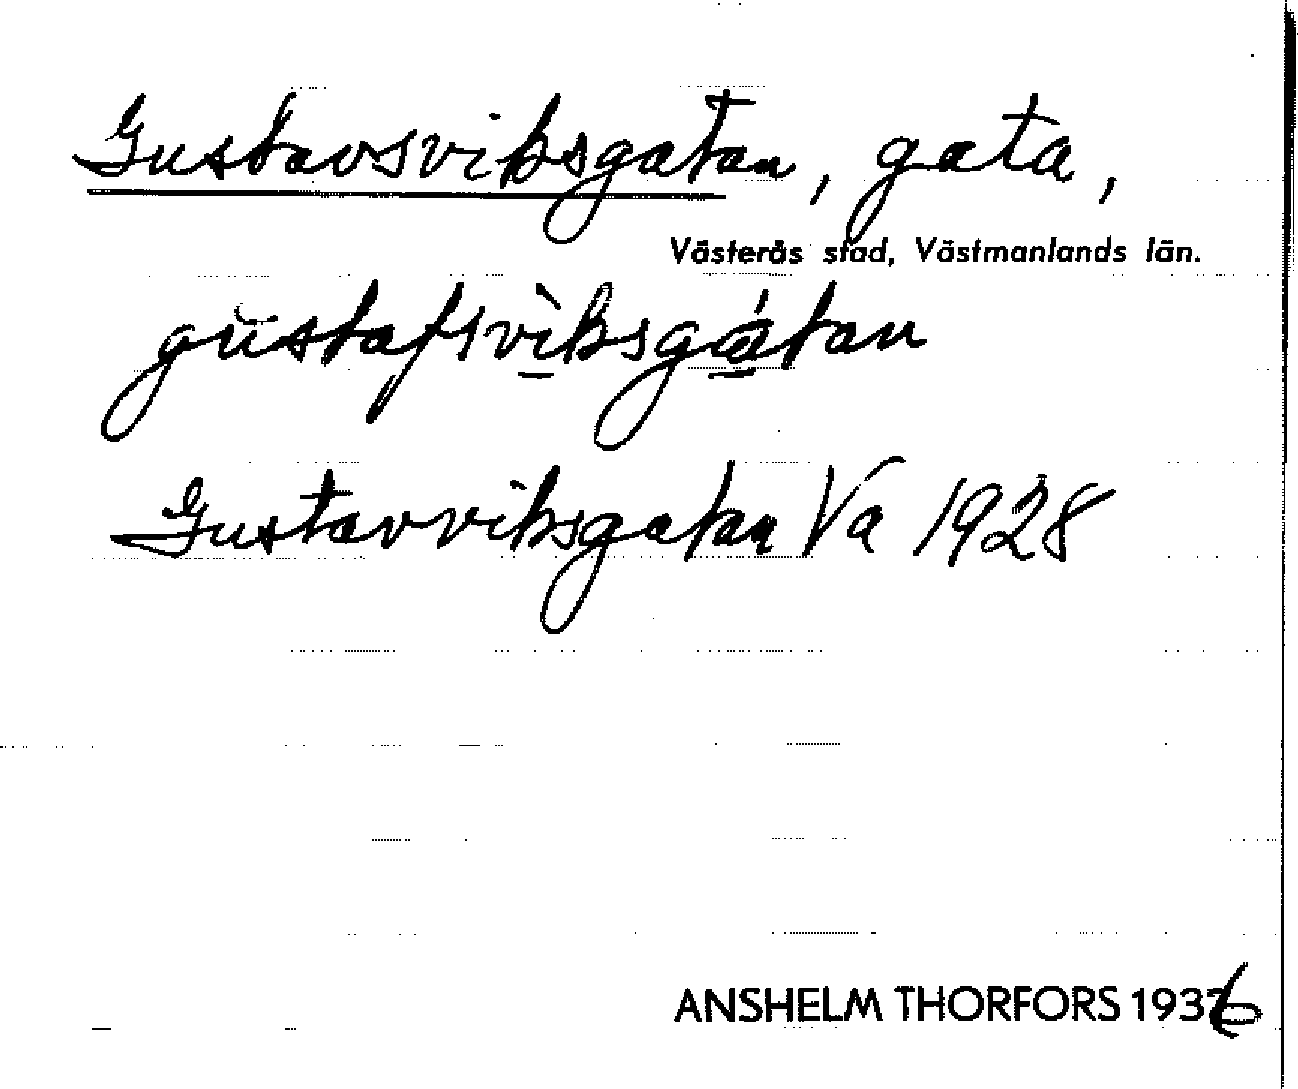 Gustavsviksgatan, gata,
Västerås stad, Västmanlands län.
gustafsvìksgátan
Gustavviksgatan Va 1928
ANSHELM THORFORS 1936